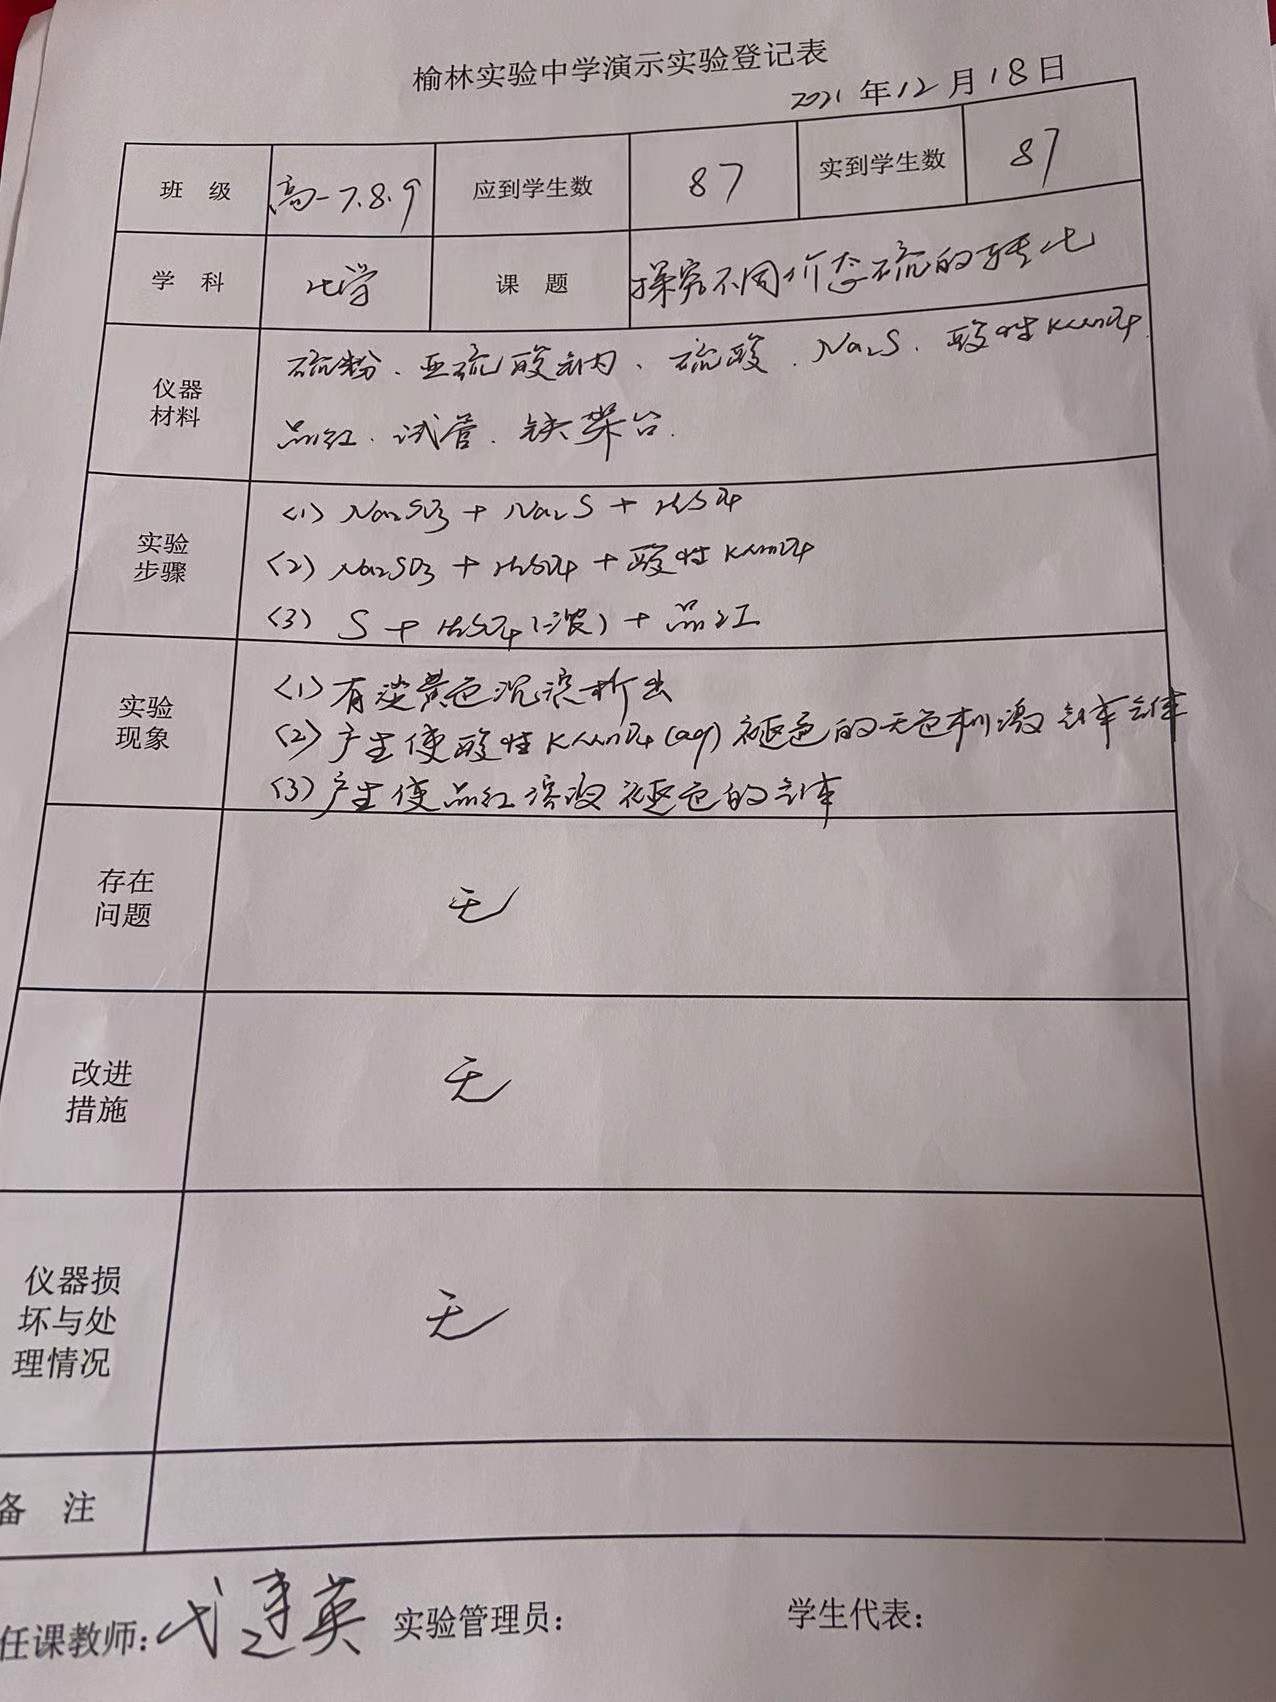 榆林实验中学演示实验登记表
2021年12月18日
班 级 高一7.8.9 应到学生数 87 实到学生数 87
学 科 化学 课 题 探究不同价态硫的转化
仪器
材料
硫粉、亚硫酸钠、硫酸、Na2S、酸性KMnO4
品红、试管、铁架台.
实验
步骤
(1) Na2SO3 + Na2S + H2SO4
(2) Na2SO3 + H2SO4 + 酸性KMnO4
(3) S + H2SO4(浓) + 品红
实验
现象
(1) 有淡黄色沉淀析出
(2) 产生使酸性KMnO4(aq)褪色的无色刺激气体气体
(3) 产生使品红溶液褪色的气体
存在
问题
无
改进
措施
无
仪器损
坏与处
理情况
无
备 注
任课教师: 建英 实验管理员: 学生代表: